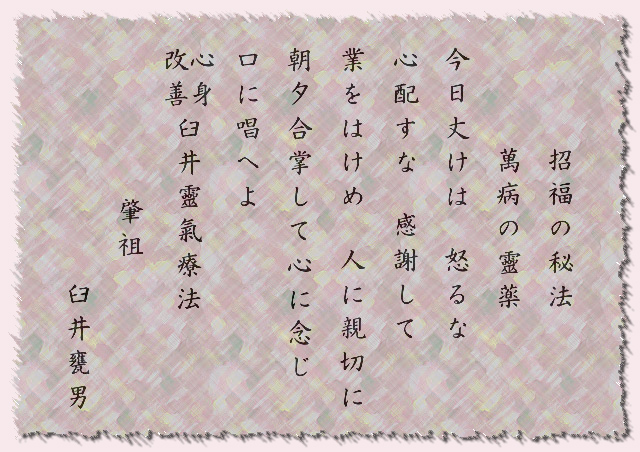 招福の秘法
萬病の霊薬
今日丈けは 怒るな
心配すな 感謝して
業をはけめ 人に親切に
朝夕合掌して心に念じ
口に唱へよ
心身改善臼井靈氣療法
肇祖
臼井甕男